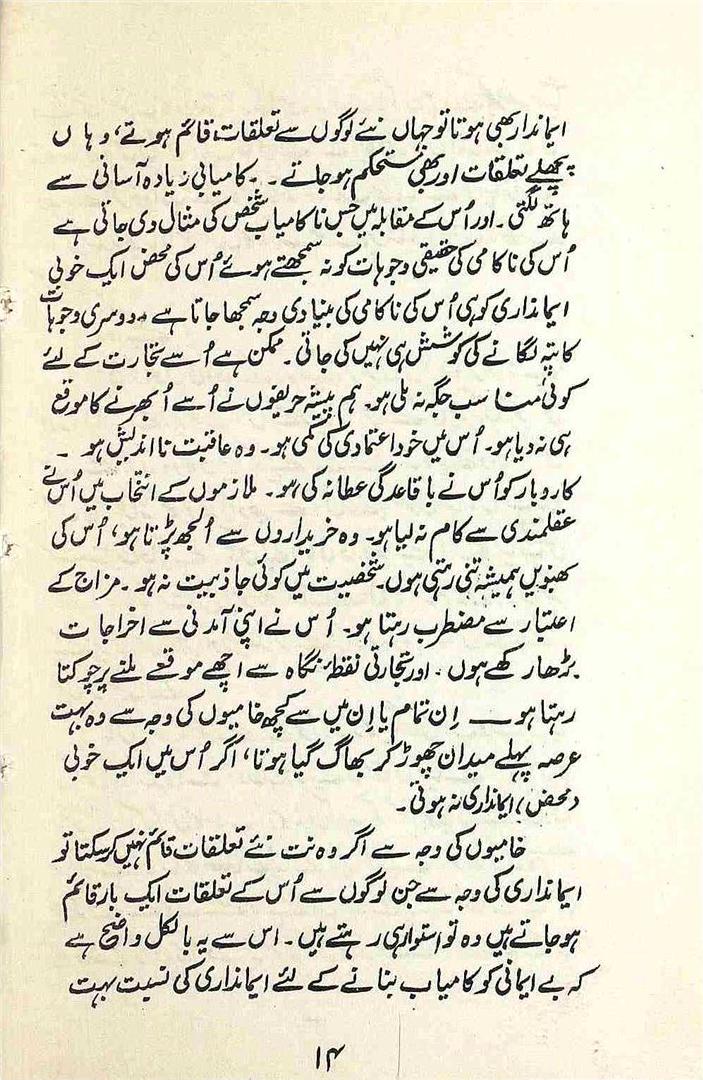 ایماندار بھی ہوتا تو جہاں نئے لوگوں سے تعلقات قائم ہوتے، وہاں
پچھلے تعلقات اور بھی مستحکم ہو جاتے۔ کامیابی زیادہ آسانی سے
ہاتھ لگتی۔ اور اُس کے مقابلہ میں جس ناکامیاب شخص کی مثال دی جاتی ہے
اُس کی ناکامی کی حقیقی وجوہات کو نہ سمجھتے ہوئے اُس کی محض ایک خوبی
ایمانداری کو ہی اُس کی ناکامی کی بنیادی وجہ سمجھا جاتا ہے۔ دوسری وجوہات
کا پتہ لگانے کی کوشش ہی نہیں کی جاتی۔ ممکن ہے اُسے تجارت کے لئے
کوئی مناسب جگہ نہ ملی ہو۔ ہم پیشہ حریفوں نے اُسے اُبھرنے کا موقع
ہی نہ دیا ہو۔ اُس میں خود اعتمادی کی کمی ہو۔ وہ عاقبت نااندیش ہو۔
کاروبار کو اُس نے باقاعدگی عطا نہ کی ہو۔ ملازموں کے انتخاب میں اُس نے
عقلمندی سے کام نہ لیا ہو۔ وہ خریداروں سے اُلجھ پڑتا ہو، اُس کی
بھنویں ہمیشہ تنی رہتی ہوں۔ شخصیت میں کوئی جاذبیت نہ ہو۔ مزاج کے
اعتبار سے مضطرب رہتا ہو۔ اُس نے اپنی آمدنی سے اخراجات
بڑھا رکھے ہوں۔ اور تجارتی نقطۂ نگاہ سے اچھے موقعے ملنے پر چوکتا
رہتا ہو ــــ اِن تمام یا اِن میں سے کچھ خامیوں کی وجہ سے وہ بہت
عرصہ پہلے میدان چھوڑ کر بھاگ گیا ہوتا، اگر اُس میں ایک خوبی
(محض) ایمانداری نہ ہوتی۔
خامیوں کی وجہ سے اگر وہ نت نئے تعلقات قائم نہیں کر سکتا تو
ایمانداری کی وجہ سے جن لوگوں سے اُس کے تعلقات ایک بار قائم
ہو جاتے ہیں وہ تو استوار ہی رہتے ہیں۔ اس سے یہ بالکل واضح ہے
کہ بے ایمانی کو کامیاب بنانے کے لئے ایمانداری کی نسبت بہت
۱۴